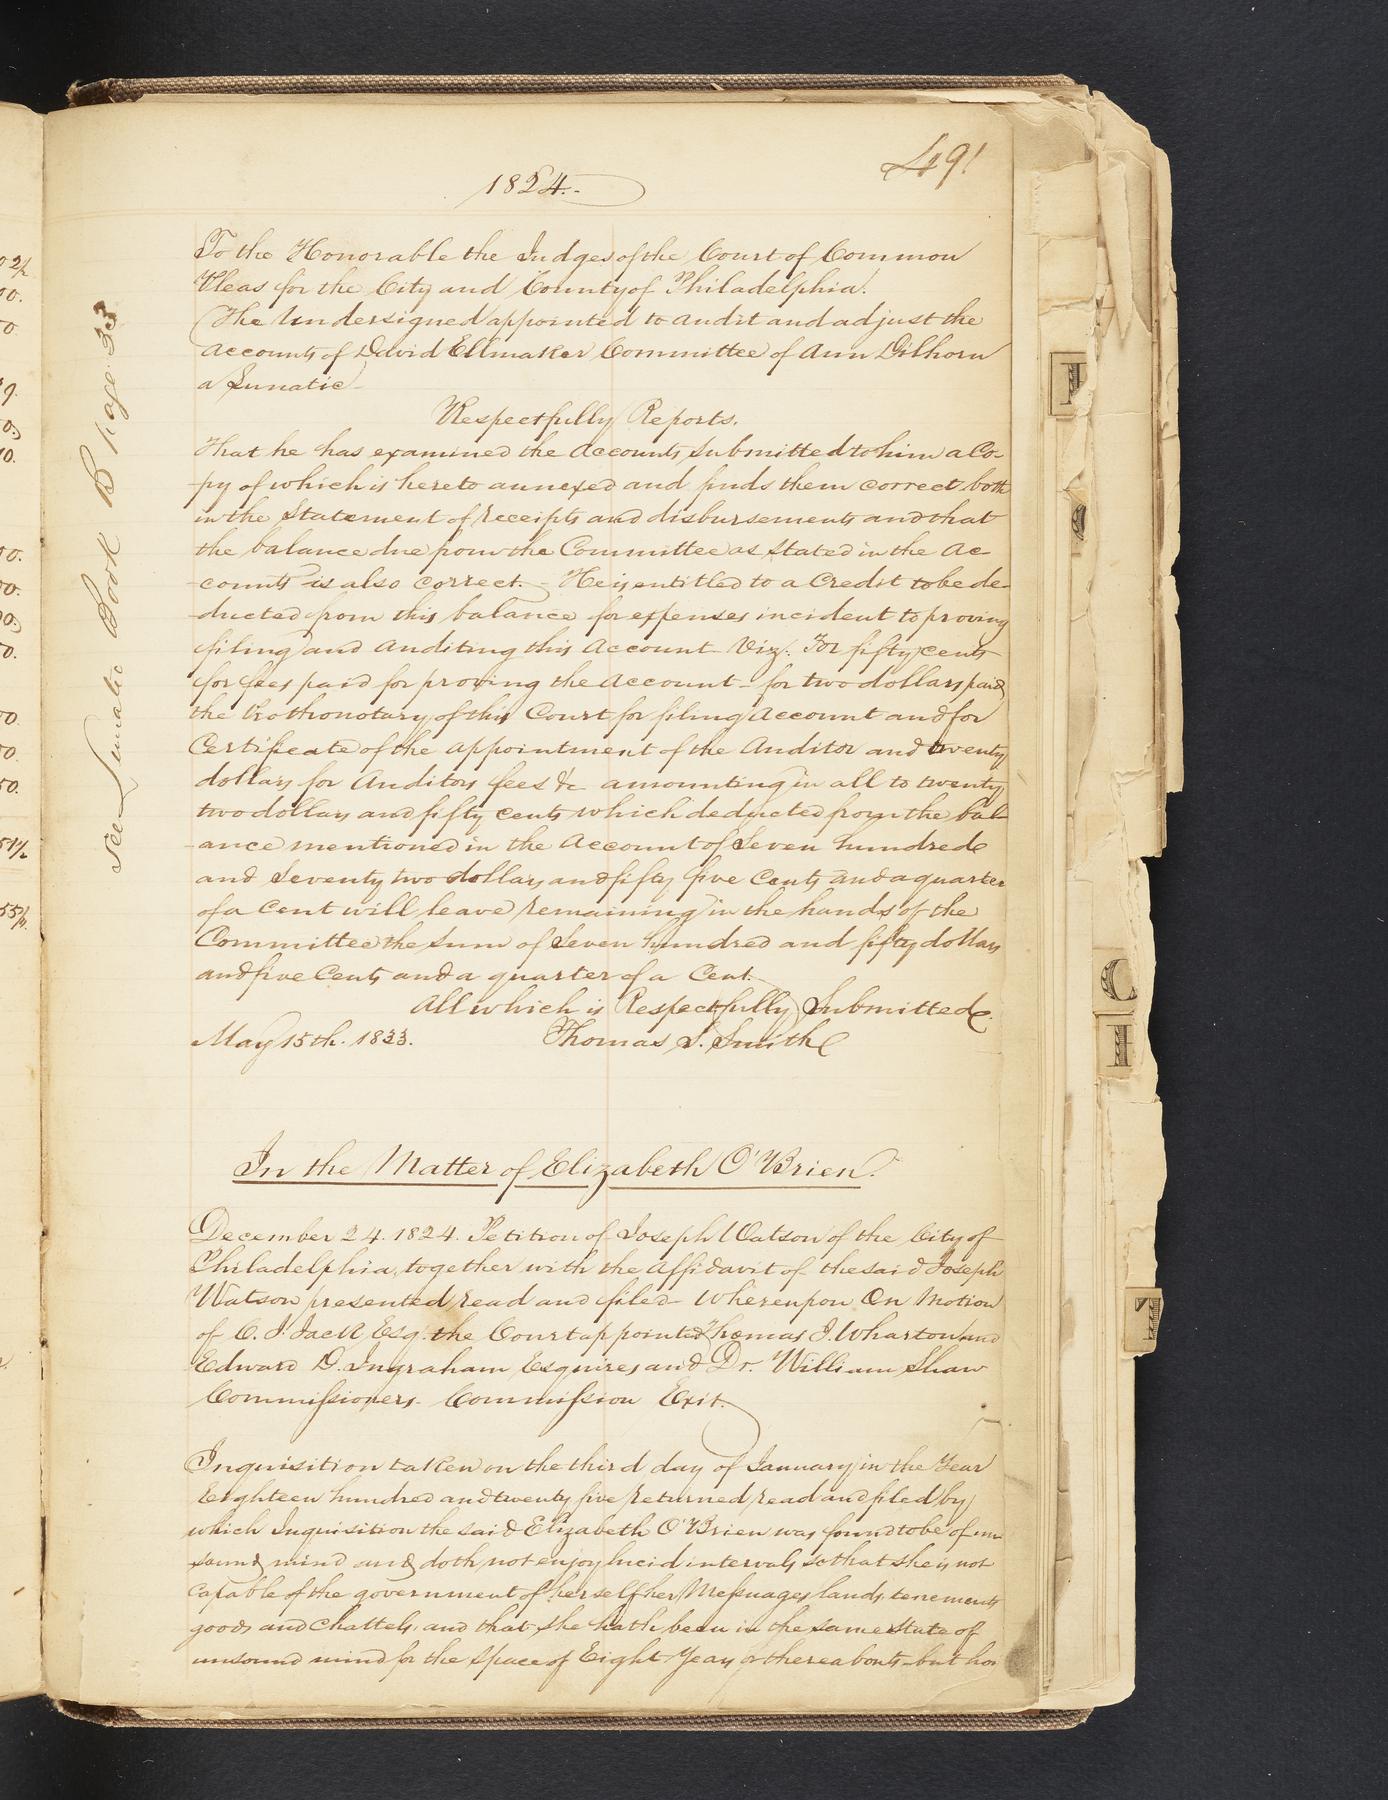 491
1824.-
To the Honorable the Judges of the Court of Common
Pleas for the City and County of Philadelphia.
The Undersigned appointed to audit and adjust the
accounts of David Ellmaker Committee of Ann Dilhorn
a Lunatic
Respectfully Reports.
That he has examined the Accounts submitted to him a Co-
py of which is hereto annexed and finds them correct both
in the Statement of receipts and disbursements and that
the balance due from the Committee as stated in the Ac-
-counts is also correct. - He is entitled to a Credit to be de-
-ducted from this balance for expenses incident to proving
filing and Auditing this Account Viz: For fifty cents
for fees paid for proving the Account - for two dollars paid
the Prothonotary of this Court for filing Account and for
Certificate of the appointment of the Auditor and twenty
dollars for Auditors fees &c amounting in all to twenty
two dollars and fifty cents which deducted from the bal-
-ance mentioned in the Account of Seven hundred
and Seventy two dollars and fifty five Cents and a quarter
of a Cent will leave remaining in the hands of the
Committee the sum of Seven hundred and fifty dollars
and five Cents and a quarter of a Cent.
All which is Respectfully Submitted
May 15th. 1833. Thomas S. Smith
See Lunatic Book B page 33
In the Matter of Elizabeth O'Brien.
December 24. 1824. Petition of Joseph Watson of the City of
Philadelphia, together with the Affidavit of the said Joseph
Watson presented, read and filed - Whereupon On Motion
of C. J. Jack Esq. the Court appointed Thomas I. Wharton and
Edward D. Ingraham Esquires and Dr. William Shaw
Commissioners. Commission Exit.
Inquisition taken on the third day of January in the Year
Eighteen hundred and twenty five returned, read and filed by
which Inquisition the said Elizabeth O'Brien was found to be of un-
sound mind and doth not enjoy lucid intervals so that she is not
capable of the government of herself her Messuages lands, tenements
goods and Chattels, and that she hath been in the same State of
unsound mind for the Space of Eight Years or thereabouts - but how
C
I
T